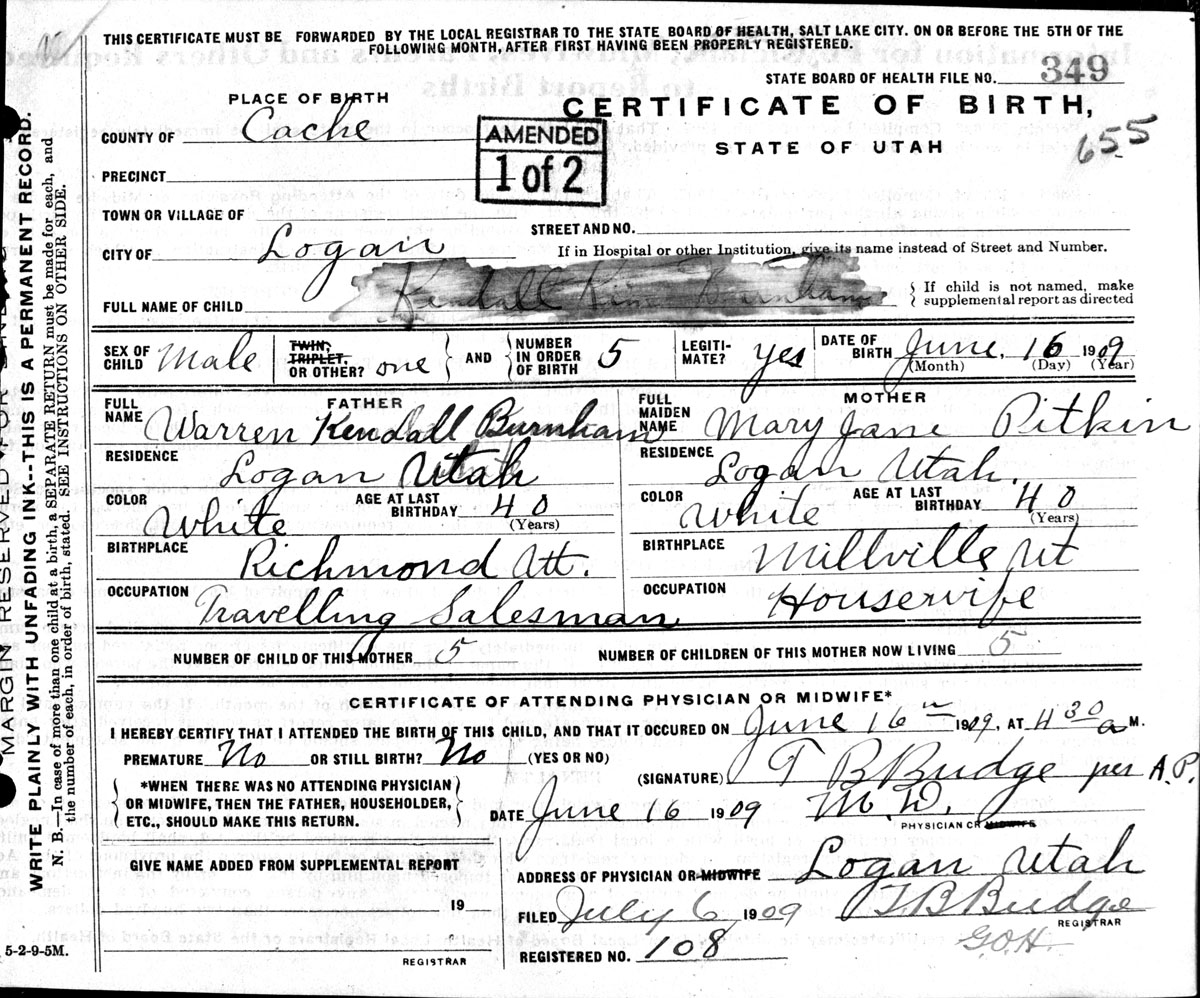 THIS CERTIFICATE MUST BE FORWARDED BY THE LOCAL REGISTRAR TO THE STATE BOARD OF HEALTH, SALT LAKE CITY. ON OR BEFORE THE 5TH OF THE
FOLLOWING MONTH, AFTER FIRST HAVING BEEN PROPERLY REGISTERED.
STATE BOARD OF HEALTH FILE NO. 349
PLACE OF BIRTH
CERTIFICATE OF BIRTH,
COUNTY OF Cache
AMENDED
1 of 2
STATE OF UTAH
655
PRECINCT
TOWN OR VILLAGE OF
STREET AND NO.
CITY OF Logan
If in Hospital or other Institution, give its name instead of Street and Number.
FULL NAME OF CHILD Kendall Burnham
If child is not named, make
supplemental report as directed
SEX OF CHILD Male
TWIN, TRIPLET, OR OTHER? one
AND
NUMBER IN ORDER OF BIRTH 5
LEGITI-MATE? yes
DATE OF BIRTH June 16 1909
(Month) (Day) (Year)
FATHER
FULL NAME Warren Kendall Burnham
RESIDENCE Logan Utah
COLOR White
AGE AT LAST BIRTHDAY 40
(Years)
BIRTHPLACE Richmond Utt.
OCCUPATION Travelling Salesman
MOTHER
FULL MAIDEN NAME Mary Jane Pitkin
RESIDENCE Logan Utah.
COLOR White
AGE AT LAST BIRTHDAY 40
(Years)
BIRTHPLACE Millville Ut
OCCUPATION Housewife
NUMBER OF CHILD OF THIS MOTHER 5
NUMBER OF CHILDREN OF THIS MOTHER NOW LIVING 5
CERTIFICATE OF ATTENDING PHYSICIAN OR MIDWIFE*
I HEREBY CERTIFY THAT I ATTENDED THE BIRTH OF THIS CHILD, AND THAT IT OCCURED ON June 16 1909, AT 4 30 a M.
PREMATURE No OR STILL BIRTH? No (YES OR NO)
(SIGNATURE) T B Budge per A.P.
*WHEN THERE WAS NO ATTENDING PHYSICIAN
OR MIDWIFE, THEN THE FATHER, HOUSEHOLDER,
ETC., SHOULD MAKE THIS RETURN.
DATE June 16 1909 M.D.
PHYSICIAN OR MIDWIFE
GIVEN NAME ADDED FROM SUPPLEMENTAL REPORT
19
REGISTRAR
ADDRESS OF PHYSICIAN OR MIDWIFE Logan Utah
FILED July 6 1909 T B Budge
REGISTRAR
G.O.H.
REGISTERED NO. 108
5-2-9-5M.
MARGIN RESERVED FOR BINDING
WRITE PLAINLY WITH UNFADING INK--THIS IS A PERMANENT RECORD.
N. B.—In case of more than one child at a birth, a SEPARATE RETURN must be made for each, and
the number of each, in order of birth, stated. SEE INSTRUCTIONS ON OTHER SIDE.